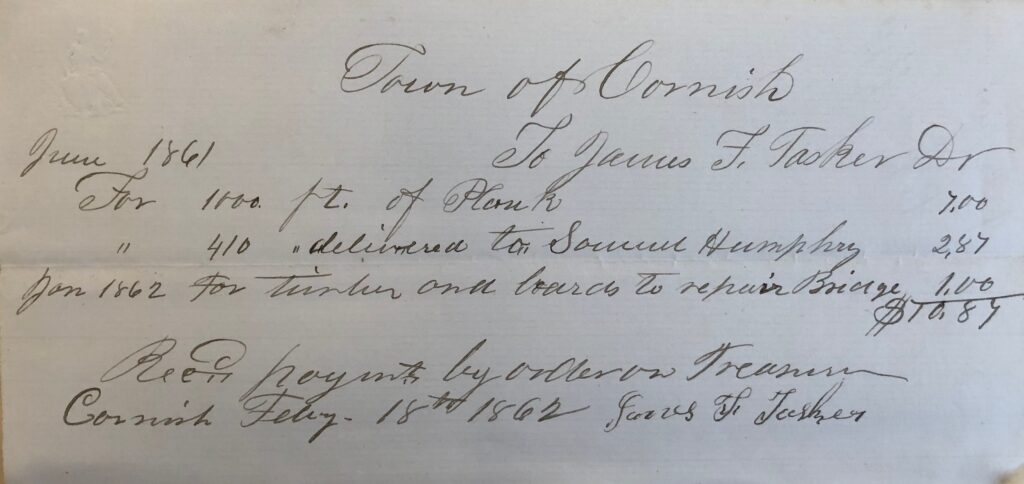 Town of Cornish
June 1861 To James F. Tasker Dr
For 1000 ft. of Plank 7.00
" 410 " delivered to Samuel Humphry 2,87
Jan. 1862 For timber and boards to repair Bridge 1.00
$10.87
Recd paymt by order on Treasurer
Cornish Feby. 18th 1862 James F. Tasker